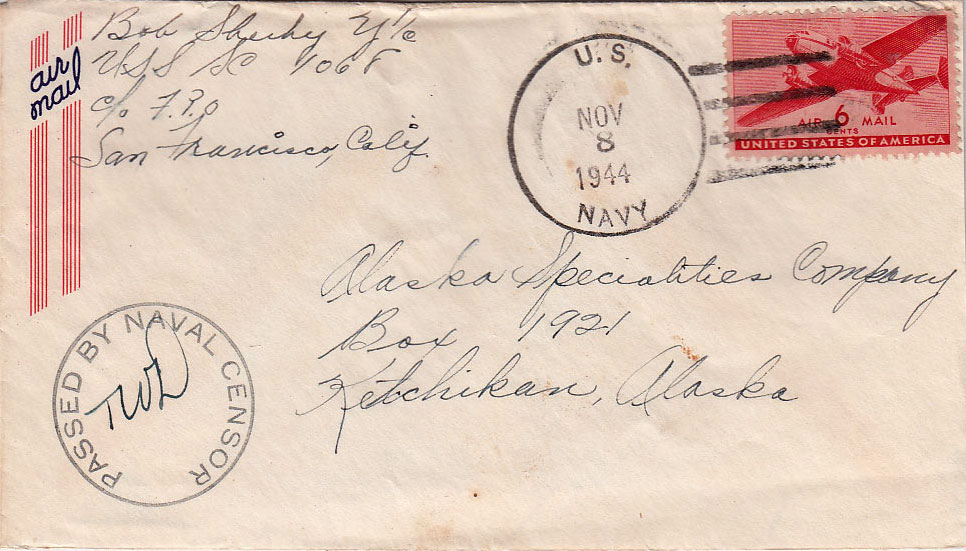 air
mail
Bob
USS SC 1068
c/o F.P.O
San Francisco, Calif.
U.S.
NOV
8
1944
NAVY
AIR 6 MAIL
CENTS
UNITED STATES OF AMERICA
Alaska Specialities Company
Box 1921
Ketchikan, Alaska
PASSED BY NAVAL CENSOR